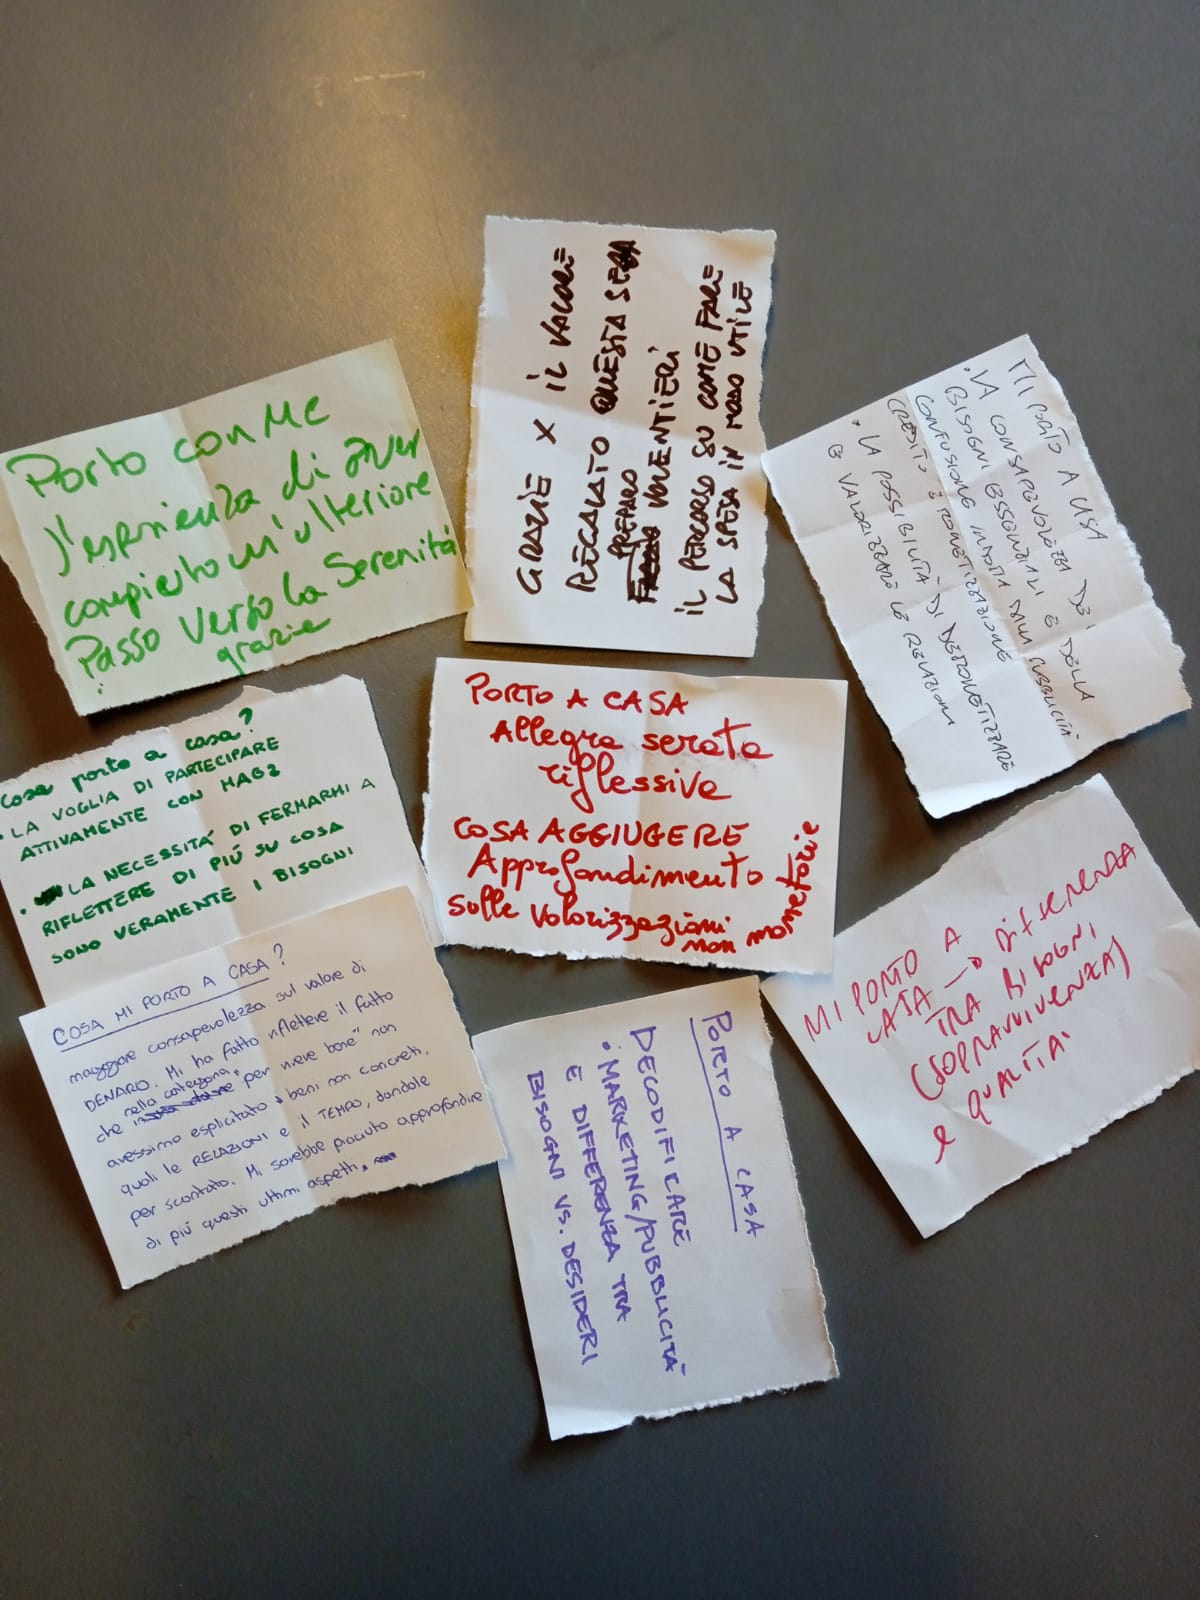 Porto con me
l'esperienza di aver
compiuto un'ulteriore
Passo verso la Serenità
grazie
GRAZIE X IL VALORE
REGALATO QUESTA SERA
PREPARO VOLENTIERI
IL PERCORSO SU COME FARE
LA SPESA IN MODO UTILE
MI PORTO A CASA
• LA CONSAPEVOLEZZA DEI
BISOGNI ESSENZIALI E DELLA
CONFUSIONE INDOTTA DALLA PUBBLICITÀ
CREDITO E MONETIZZAZIONE
• LA POSSIBILITÀ DI DEMONETIZZARE
E VALORIZZARE LE RELAZIONI
Cosa porto a casa?
• LA VOGLIA DI PARTECIPARE
ATTIVAMENTE CON MAG2
• LA NECESSITÀ DI FERMARMI A
RIFLETTERE DI PIÚ SU COSA
SONO VERAMENTE I BISOGNI
PORTO A CASA
Allegra serata
riflessive
COSA AGGIUGERE
Approfondimento
sulle valorizzazioni
non monetarie
MI PORTO A
CASA → DIFFERENZA
TRA BISOGNI
(SOPRAVVIVENZA)
e QUALITA'
COSA MI PORTO A CASA?
maggiore consapevolezza sul valore di
DENARO. Mi ha fatto riflettere il fatto
che nella categoria "per vivere bene" non
avessimo esplicitato i beni non concreti,
quali le RELAZIONI e il TEMPO, dandole
per scontato. Mi sarebbe piaciuto approfondire
di piú questi ultimi aspetti.
PORTO A CASA
DECODIFICARE
• MARKETING/PUBBLICITÀ
E DIFFERENZA TRA
BISOGNI VS. DESIDERI